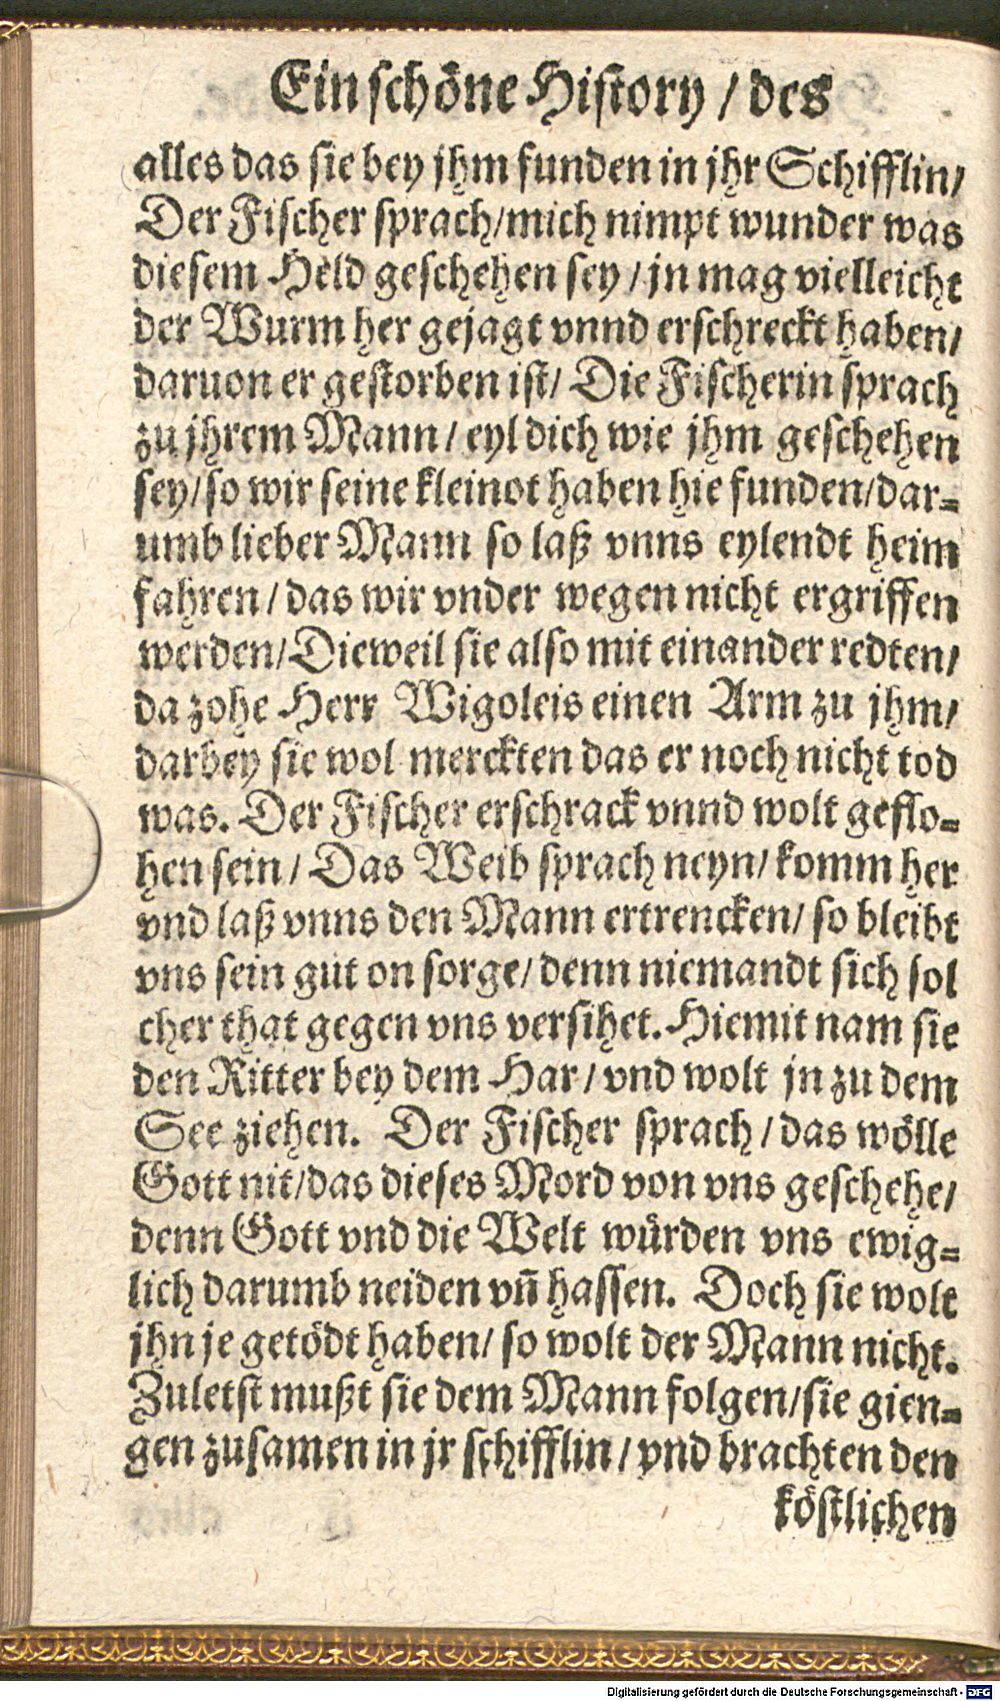 Ein schöne History / des
alles das sie bey jhm funden in jhr Schifflin/
Der Fischer sprach/mich nimpt wunder was
diesem Held geschehen sey / jn mag vielleicht
der Wurm her gejagt vnnd erschreckt haben/
daruon er gestorben ist/ Die Fischerin sprach
zu jhrem Mann / eyl dich wie jhm geschehen
sey/so wir seine kleinot haben hie funden/dar-
umb lieber Mann so laß vnns eylendt heim
fahren / das wir vnder wegen nicht ergriffen
werden/Dieweil sie also mit einander redten/
da zohe Herr Wigoleis einen Arm zu jhm/
darbey sie wol merckten das er noch nicht tod
was. Der Fischer erschrack vnnd wolt geflo-
hen sein / Das Weib sprach neyn/ komm her
vnd laß vnns den Mann ertrencken/ so bleibt
vns sein gut on sorge/ denn niemandt sich sol
cher that gegen vns versihet. Hiemit nam sie
den Ritter bey dem Har / vnd wolt jn zu dem
See ziehen. Der Fischer sprach / das wölle
Gott nit/das dieses Mord von vns geschehe/
denn Gott vnd die Welt würden vns ewig-
lich darumb neiden vn̄ hassen. Doch sie wolt
jhn je getödt haben/ so wolt der Mann nicht.
Zuletst mußt sie dem Mann folgen/sie gien-
gen zusamen in jr schifflin / vnd brachten den
köstlichen
Digitalisierung gefördert durch die Deutsche Forschungsgemeinschaft - DFG